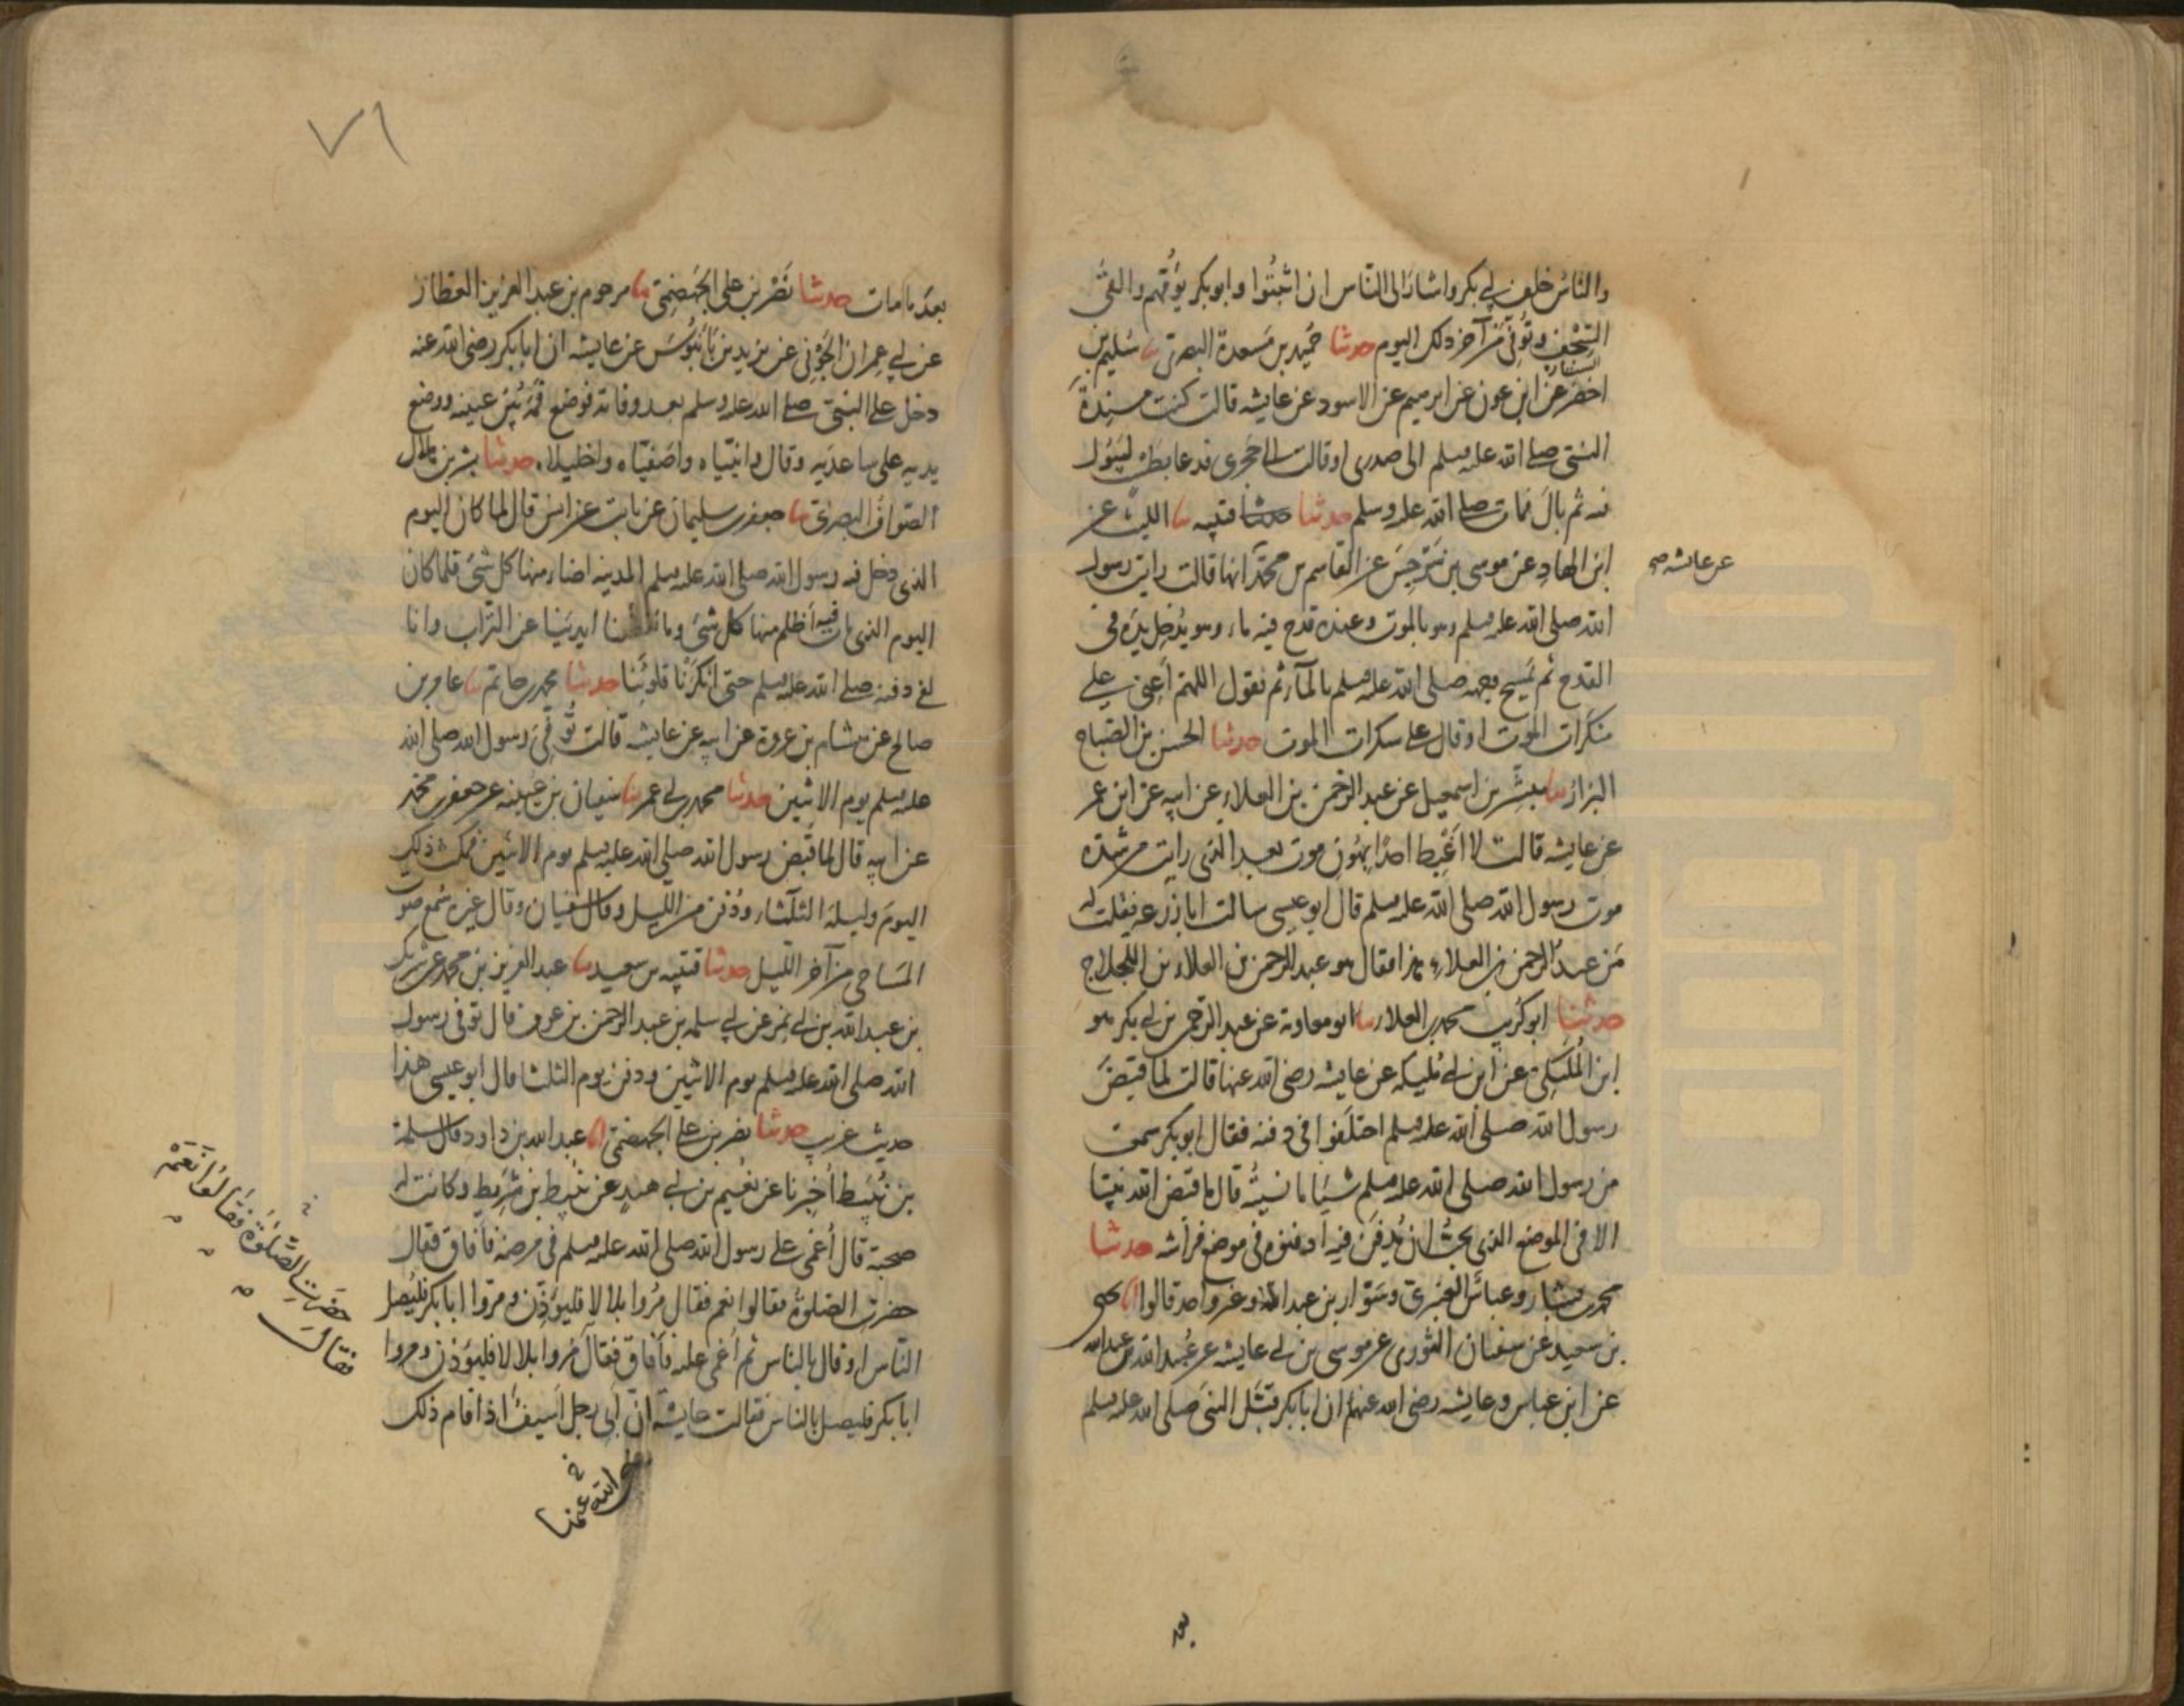 والناس خلف ابي بكر واشار الى الناس ان اثبتوا وابو بكر يؤمهم والقى
السجف وتوفي من آخر ذلك اليوم حدثنا حميد بن مسعدة البصرى نا سليم بن
اخضر عن ابن عون عن ابرهيم عن الاسود عن عايشه قالت كنت مسندة
النبي صلى الله عليه وسلم الى صدرى او قالت الى حجرى فدعا بطست ليبول
فيه ثم بال فمات صلى الله عليه وسلم حدثنا حدثنا قتيبه نا الليث عن
ابن الهاد عن موسى بن سرجس عن القاسم بن محمد انها قالت رايت رسول
عن عايشه صح
الله صلى الله عليه وسلم وهو بالموت وعنده قدح فيه ماء وهو يدخل يده فى
القدح ثم يمسح وجهه صلى الله عليه وسلم بالماء ثم يقول اللهم اعنى على
منكرات الموت او قال على سكرات الموت حدثنا الحسن بن الصباح
البزار نا مبشر بن اسمعيل عن عبد الرحمن بن العلاء عن ابيه عن ابن عمر
عن عايشه قالت لا اغبط احدا بهون موت بعد الذى رايت من شدة
موت رسول الله صلى الله عليه وسلم قال ابو عيسى سالت ابا زرعه فقلت له
من عبد الرحمن بن العلاء هذا فقال هو عبد الرحمن بن العلاء بن اللجلاج
حدثنا ابو كريب محمد بن العلاء نا ابو معاوية عن عبد الرحمن بن ابي بكر هو
ابن المليكى عن ابن ابي مليكه عن عايشه رضى الله عنها قالت لما قبض
رسول الله صلى الله عليه وسلم اختلفوا فى دفنه فقال ابو بكر سمعت
من رسول الله صلى الله عليه وسلم شيئا ما نسيته قال ما قبض الله نبيا
الا فى الموضع الذى يحب ان يدفن فيه ادفنوه فى موضع فراشه حدثنا
محمد بن بشار وعباس العنبرى وسوار بن عبد الله وغير واحد قالوا انا يحيى
بن سعيد عن سفيان الثورى عن موسى بن ابي عايشه عن عبيد الله بن عبد الله
عن ابن عباس وعايشه رضى الله عنهم ان ابا بكر قبل النبى صلى الله عليه وسلم
بعد
٧٦
بعد ما مات حدثنا نصر بن على الجهضمى نا مرحوم بن عبد العزيز العطار
عن ابي عمران الجونى عن يزيد بن بابنوس عن عايشه ان ابا بكر رضى الله عنه
دخل على النبى صلى الله عليه وسلم بعد وفاته فوضع فمه بين عينيه ووضع
يديه على ساعديه وقال وانبياه واصفياه واخليلاه حدثنا بشر بن هلال
الصواف البصرى نا جعفر بن سليمان عن ثابت عن انس قال لما كان اليوم
الذى دخل فيه رسول الله صلى الله عليه وسلم المدينه اضاء منها كل شئ فلما كان
اليوم الذى مات فيه اظلم منها كل شئ وما نفضنا ايدينا عن التراب وانا
لفى دفنه صلى الله عليه وسلم حتى انكرنا قلوبنا حدثنا محمد بن حاتم نا عامر بن
صالح عن هشام بن عروة عن ابيه عن عايشه قالت توفى رسول الله صلى الله
عليه وسلم يوم الاثنين حدثنا محمد بن ابي عمر نا سفيان بن عيينه عن جعفر بن محمد
عن ابيه قال لما قبض رسول الله صلى الله عليه وسلم يوم الاثنين فمكث ذلك
اليوم وليلة الثلثاء ودفن من الليل وقال سفيان وقال غيره سمع صوت
المساحى من آخر الليل حدثنا قتيبه بن سعيد نا عبد العزيز بن محمد عن شريك
بن عبد الله بن ابي نمر عن ابي سلمه بن عبد الرحمن بن عوف قال توفى رسول
الله صلى الله عليه وسلم يوم الاثنين ودفن يوم الثلثا قال ابو عيسى هذا
حديث غريب حدثنا نصر بن على الجهضمى انا عبد الله بن داود قال سلمة
بن نبيط اخبرنا عن نعيم بن ابي هند عن نبيط بن شريط وكانت له
صحبة قال اغمى على رسول الله صلى الله عليه وسلم فى مرضه فافاق فقال
حضرت الصلوة فقالوا نعم فقال مروا بلالا فليؤذن ومروا ابا بكر فليصل
الناس او قال بالناس ثم اغمى عليه فافاق فقال مروا بلالا فليؤذن ومروا
ابا بكر فليصل بالناس فقالت عايشه ان ابى رجل اسيف اذا قام ذلك
فقال
حضرت الصلوة فقالوا نعم
رضى الله عنها